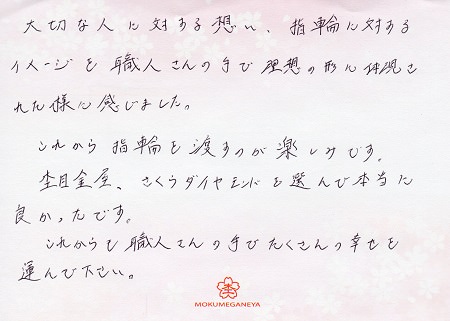 大切な人に対する想い、指輪に対する
イメージを職人さんの手で理想の形に体現さ
れた様に感じました。
これから指輪を渡すのが楽しみです。
杢目金屋、さくらダイヤモンドを選んで本当に
良かったです。
これからも職人さんの手でたくさんの幸せを
運んで下さい。
MOKUMEGANEYA